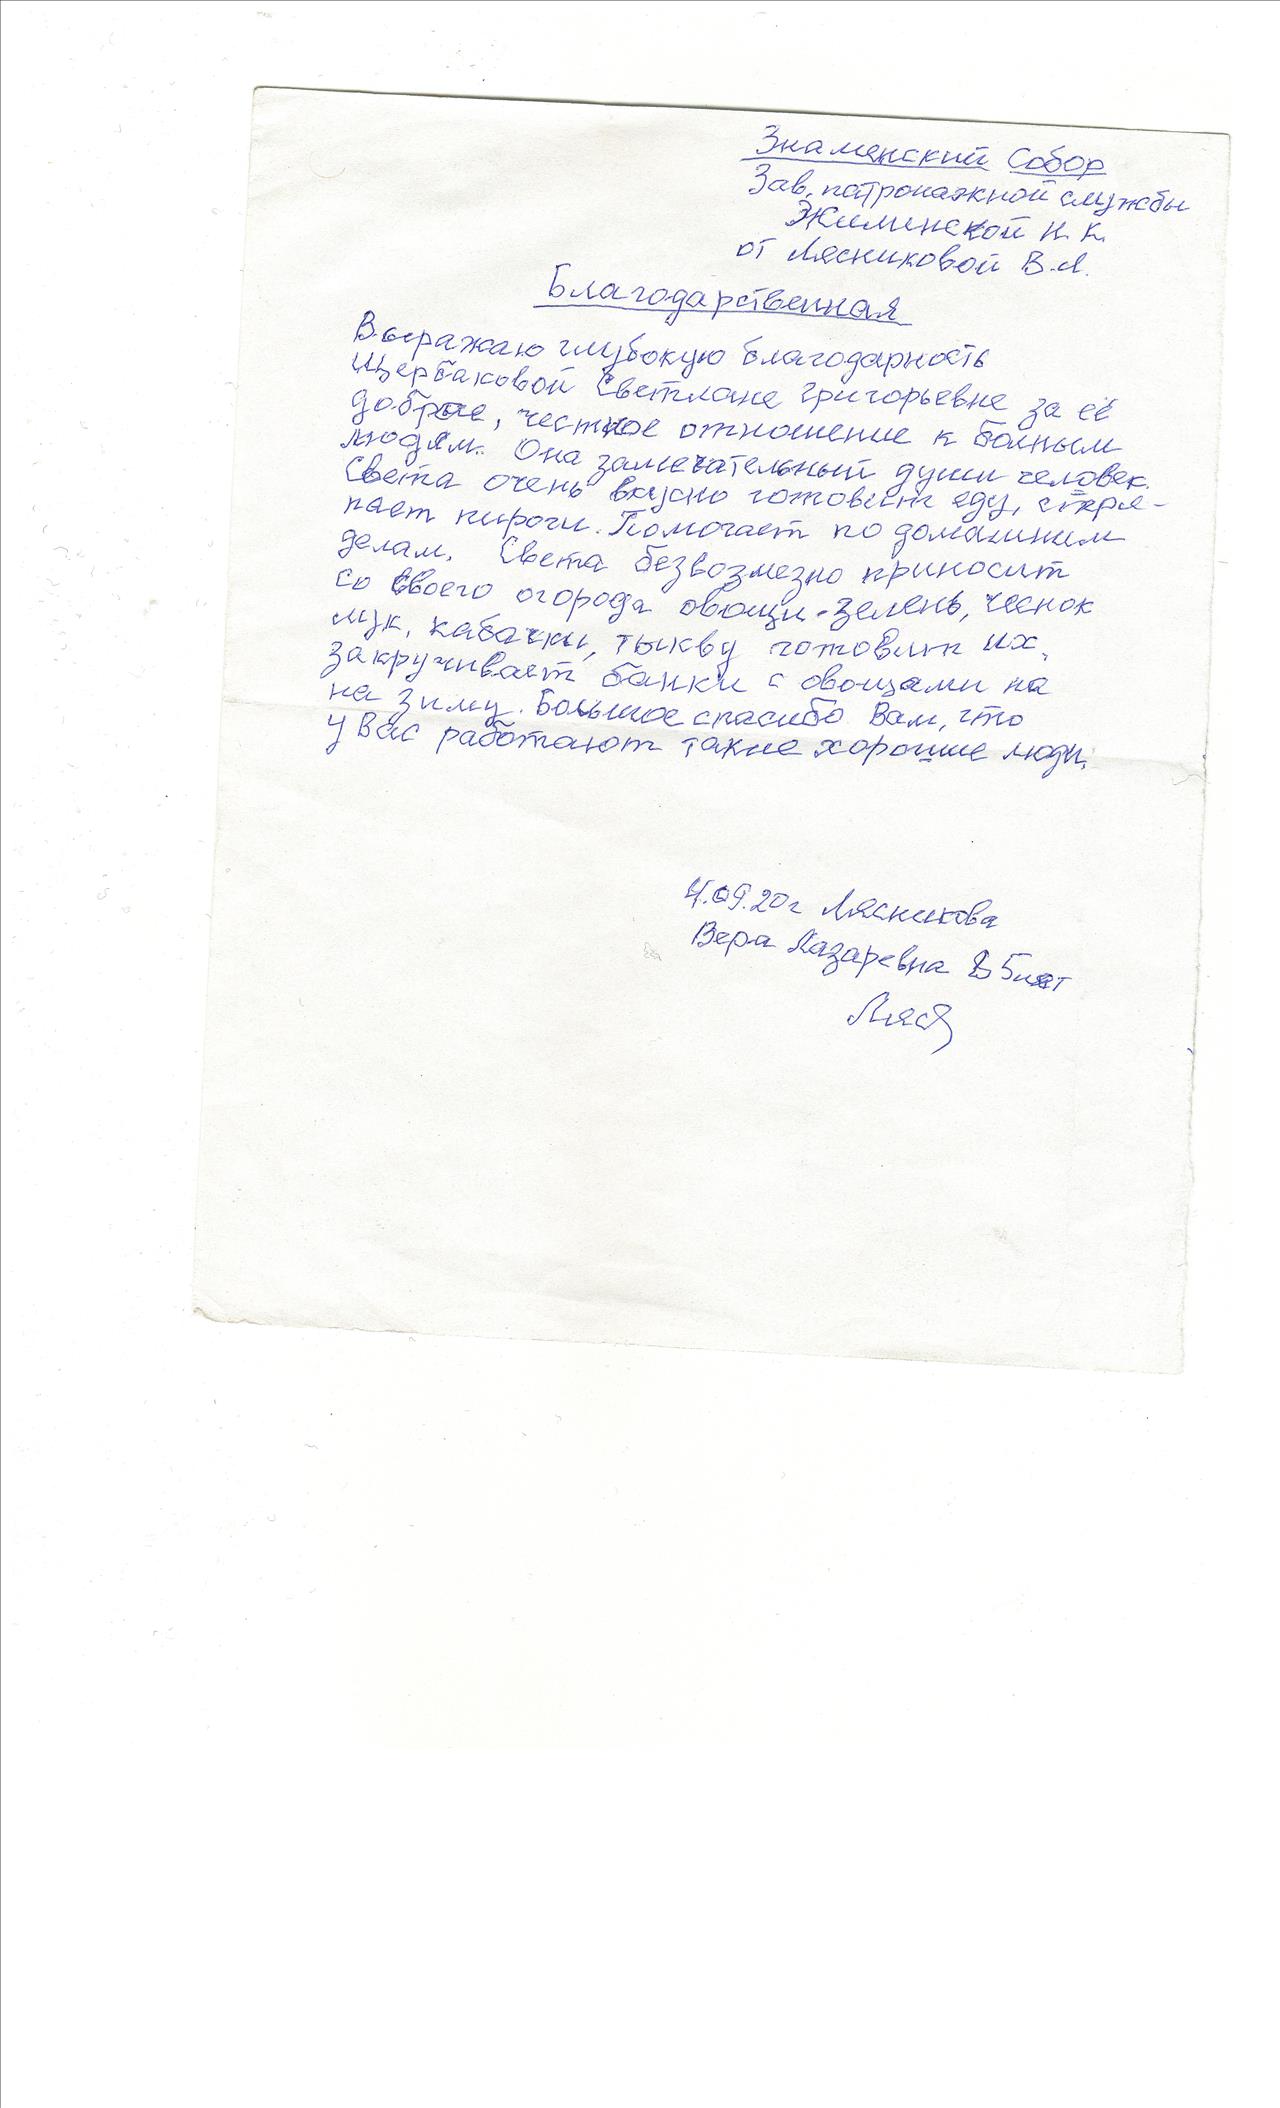 Знаменский Собор
Зав. патронажной службы
Жилинской Н. К.
от Лясниковой В.Л.
Благодарственная
Выражаю глубокую благодарность
Щербаковой Светлане Григорьевне за её
доброе, честное отношение к больным
людям. Она замечательный души человек.
Света очень вкусно готовит еду, стря-
пает пироги. Помогает по домашним
делам. Света безвозмезно приносит
со своего огорода овощи-зелень, чеснок
лук, кабачки, тыкву готовит их,
закручивает банки с овощами на
на зиму. Большое спасибо Вам, что
у Вас работают такие хорошие люди.
4.09.20г Лясникова
Вера Лазаревна 85 лет
Ляс